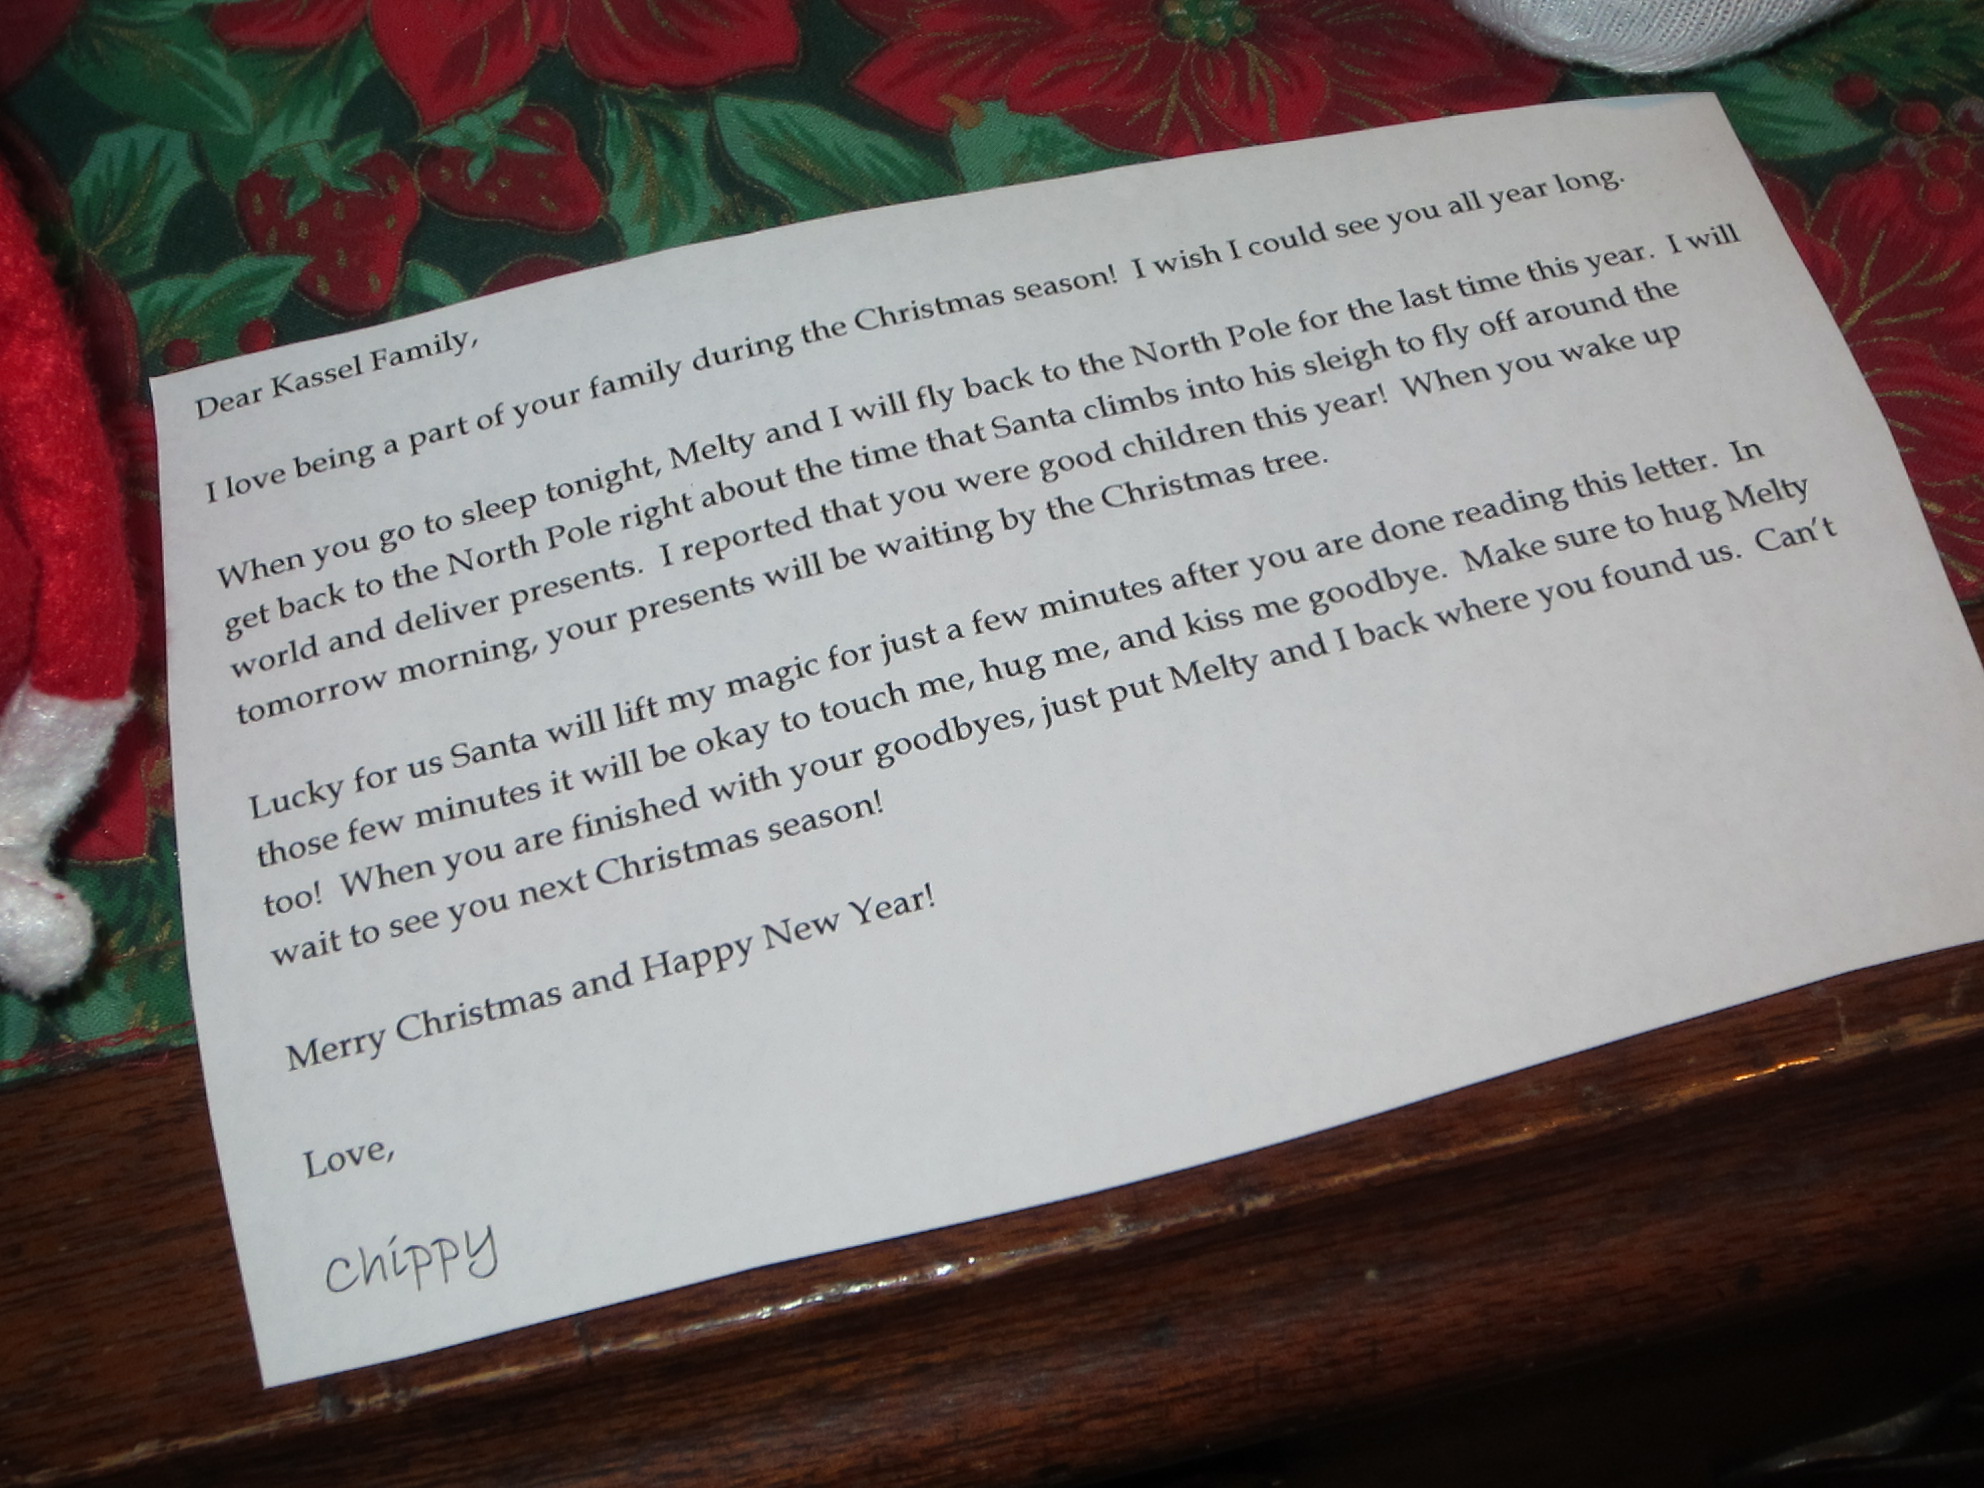 Dear Kassel Family,
I love being a part of your family during the Christmas season! I wish I could see you all year long.
When you go to sleep tonight, Melty and I will fly back to the North Pole for the last time this year. I will
get back to the North Pole right about the time that Santa climbs into his sleigh to fly off around the
world and deliver presents. I reported that you were good children this year! When you wake up
tomorrow morning, your presents will be waiting by the Christmas tree.
Lucky for us Santa will lift my magic for just a few minutes after you are done reading this letter. In
those few minutes it will be okay to touch me, hug me, and kiss me goodbye. Make sure to hug Melty
too! When you are finished with your goodbyes, just put Melty and I back where you found us. Can't
wait to see you next Christmas season!
Merry Christmas and Happy New Year!
Love,
Chippy